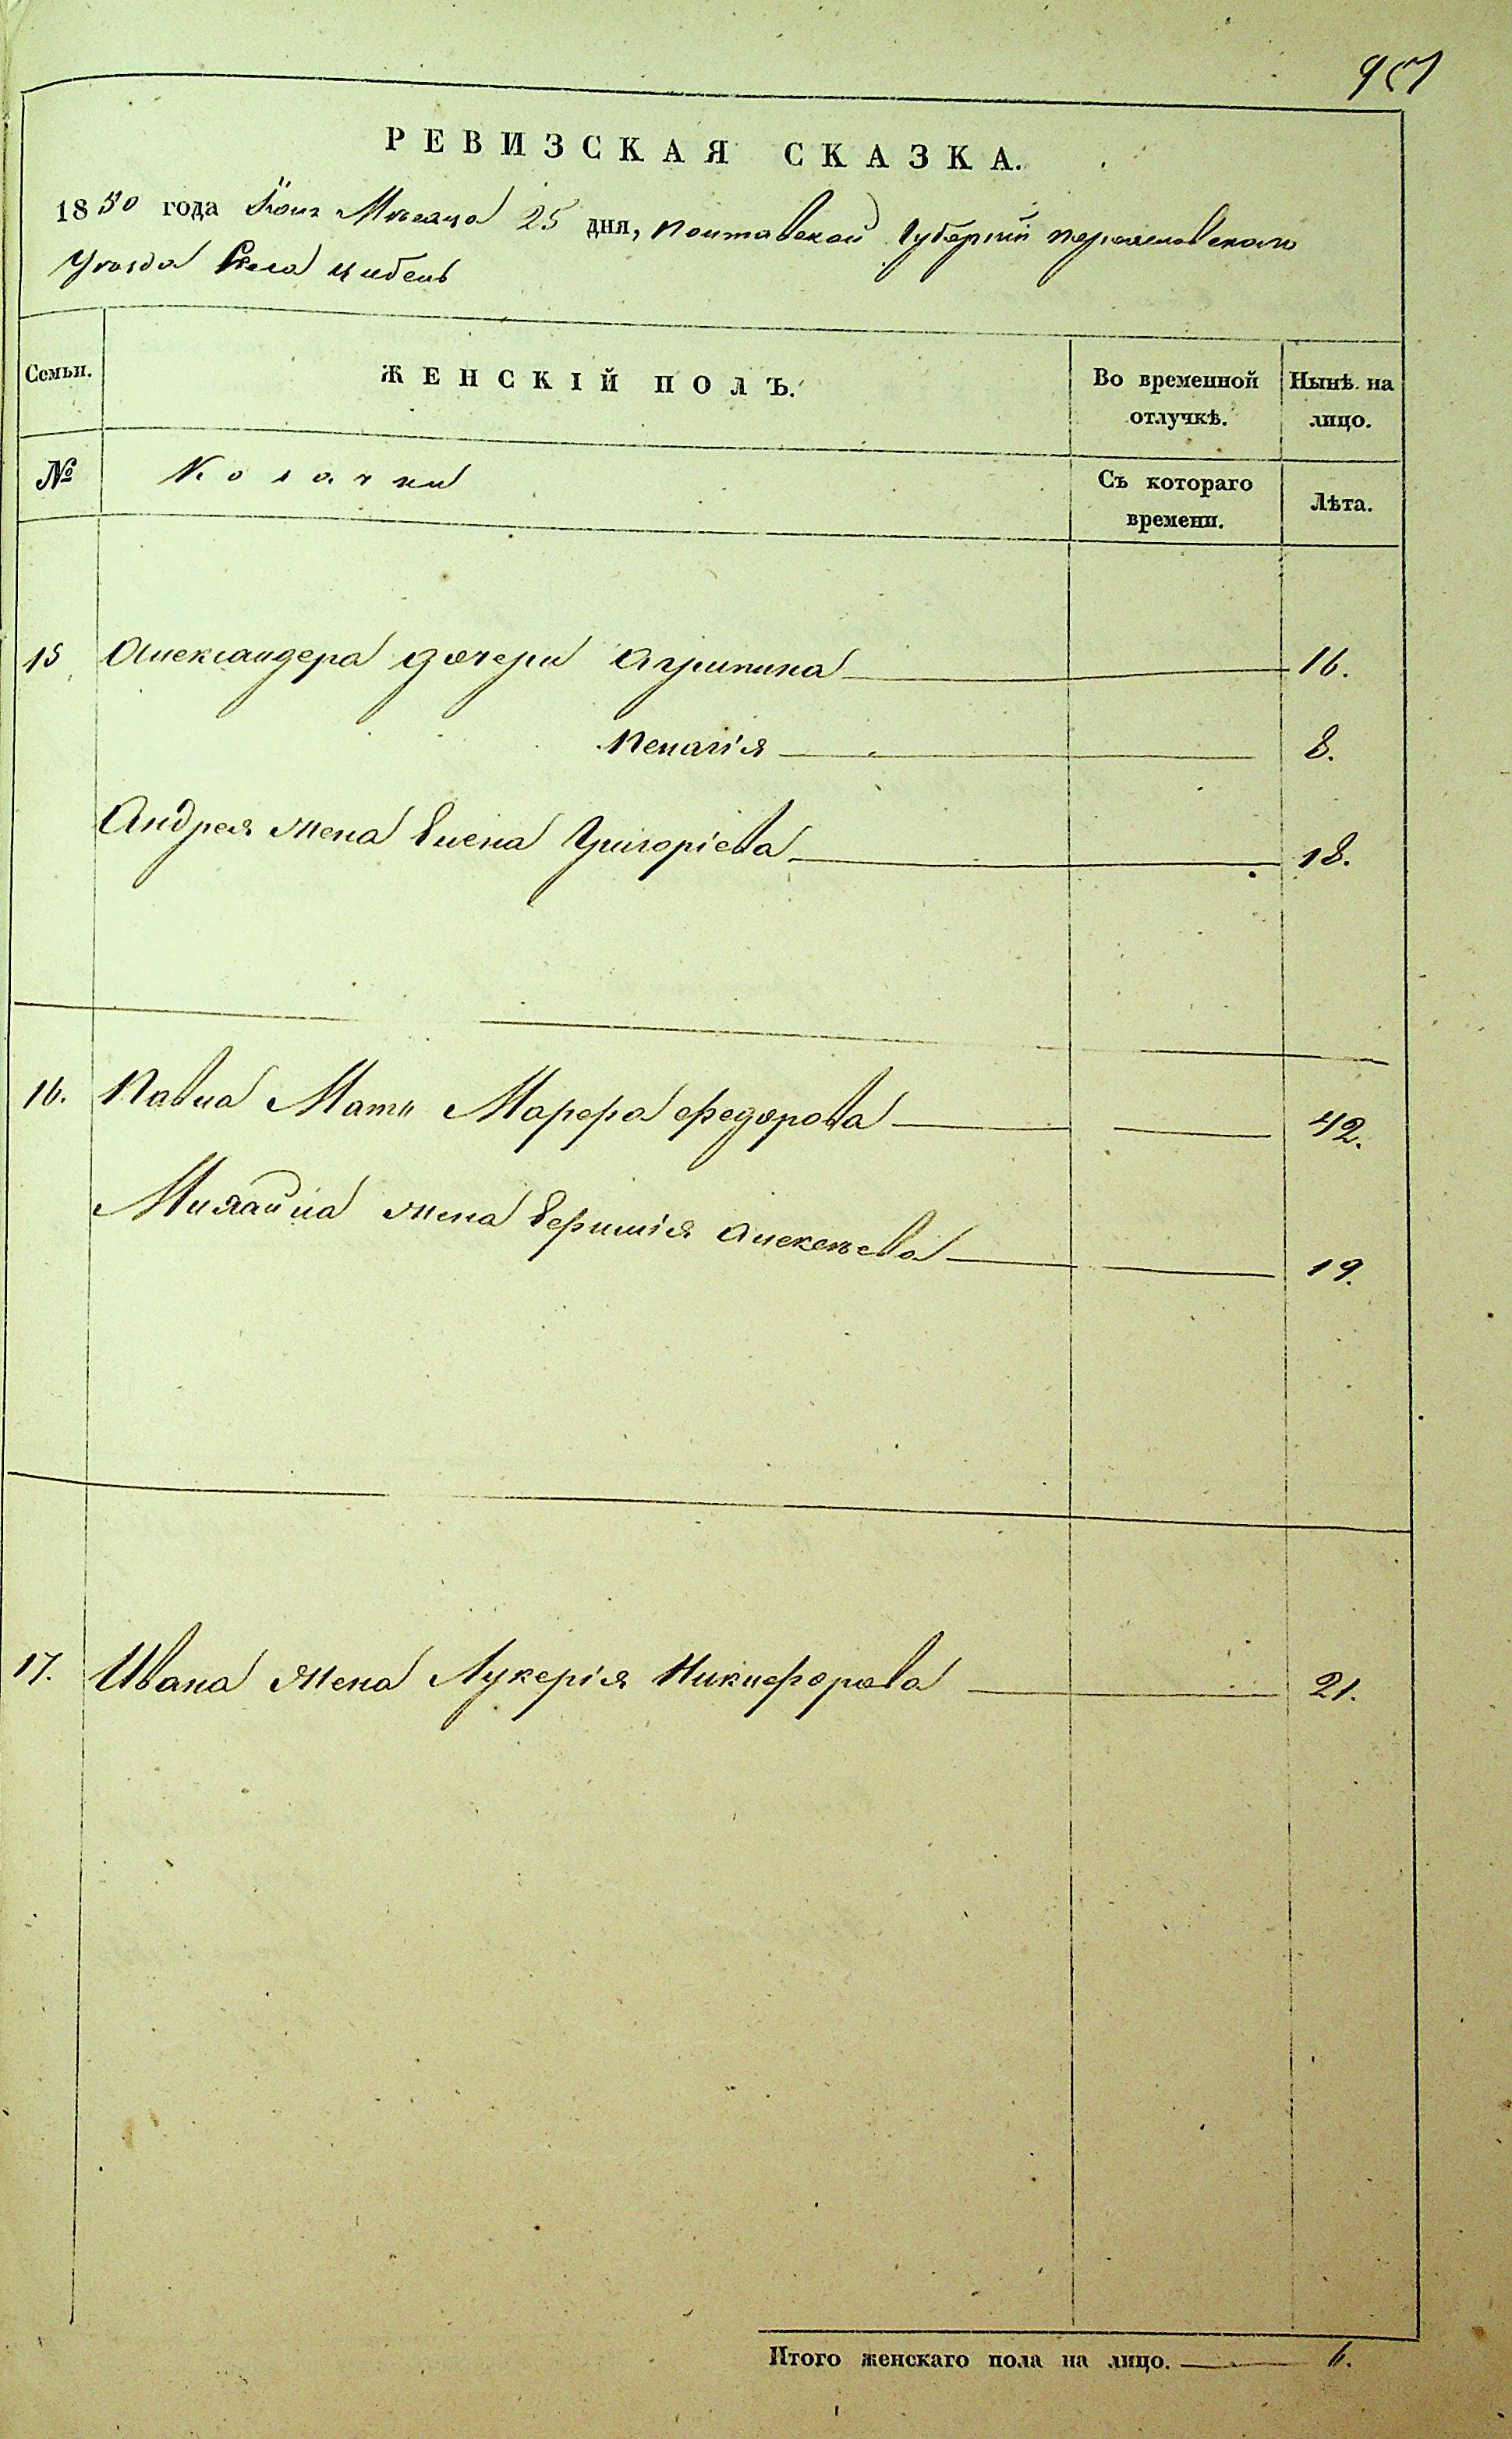 957
РЕВИЗСКАЯ СКАЗКА.
1850 года Іюня Мѣсяца 25 дня, Полтавской Губерніи Переяславскаго
Уѣзда Села Цибель
Семьи.
ЖЕНСКІЙ ПОЛЪ.
Во временной отлучкѣ.
Нынѣ на лицо.
№
Козачки
Съ котораго времени.
Лѣта.
15 Александера дочери Агрипина 16.
Пелагія 8.
Андрея жена Елена Григоріева 18.
16. Павла Мать Марфа Федорова 42.
Михайла жена Ефимія Алексѣева 19.
17. Ивана жена Лукерія Никифорова 21.
Итого женскаго пола на лицо. 6.